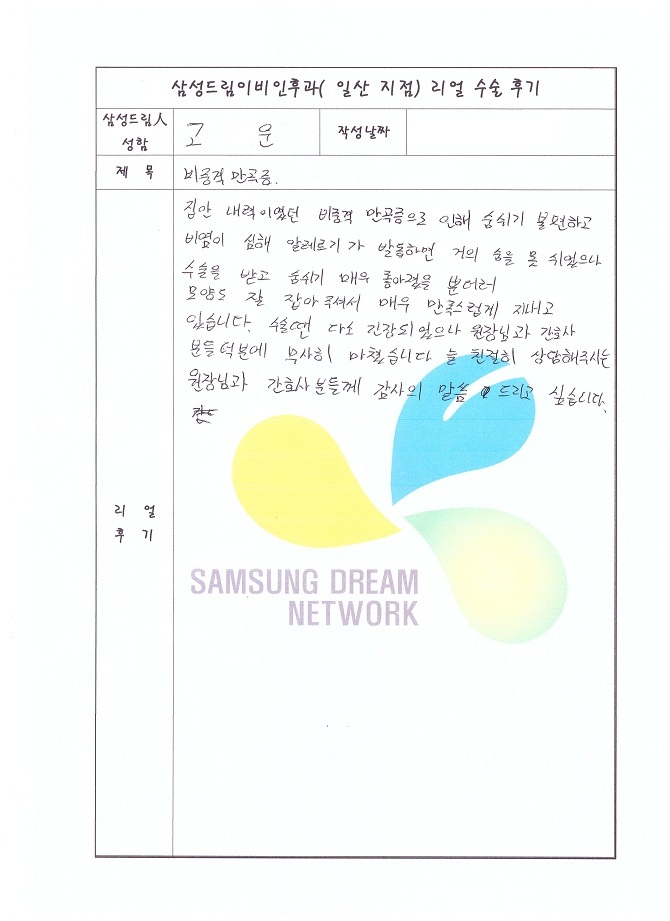 삼성드림이비인후과( 일산 지점) 리얼 수술 후기
삼성드림人
성함
고 운
작성날짜
제 목
비중격 만곡증.
집안 내력이였던 비중격 만곡증으로 인해 숨쉬기 불편하고
비염이 심해 알레르기가 발동하면 거의 숨을 못 쉬었으나
수술을 받고 숨쉬기 매우 좋아졌을 뿐더러
모양도 잘 잡아주셔서 매우 만족스럽게 지내고
있습니다. 수술때 다소 긴장되었으나 원장님과 간호사
분들덕분에 무사히 마쳤습니다 늘 친절히 상담해주시는
원장님과 간호사분들께 감사의 말씀 드리고 싶습니다.
리 얼
후 기
SAMSUNG DREAM
NETWORK